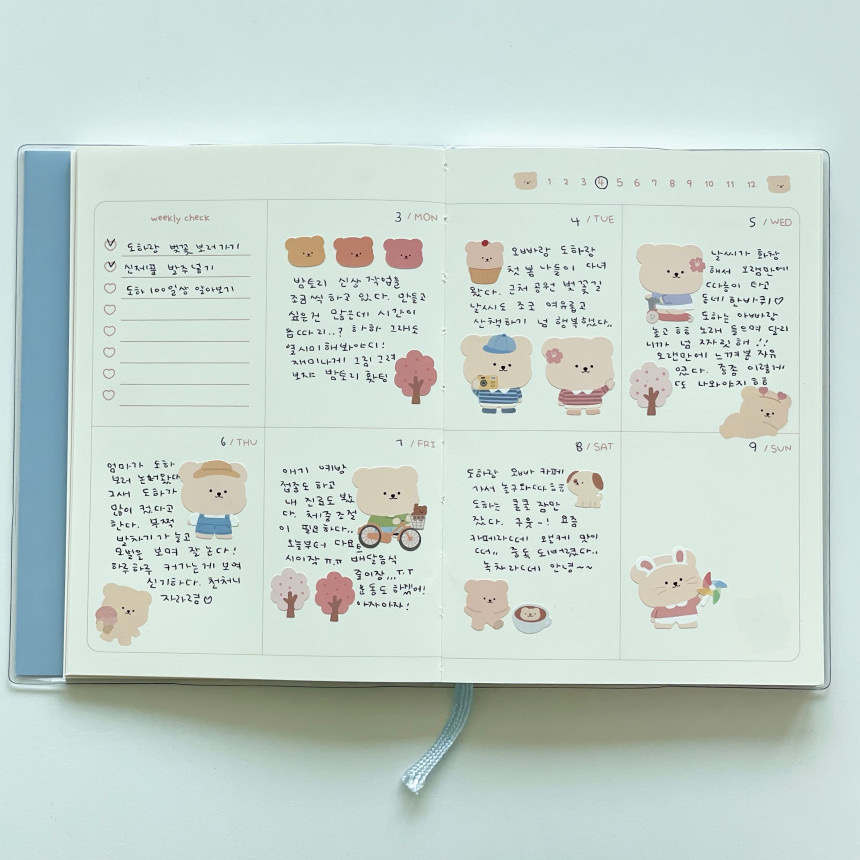 1 2 3 4 5 6 7 8 9 10 11 12
weekly check
도하랑 벚꽃 보러가기
신제품 발주넣기
도하 100일상 알아보기
3 / MON
밤토리 신상 작업을
조금씩 하고 있다. 만들고
싶은건 많은데 시간이
음따리..? 하하 그래도
열시미 해봐야지!
재미나게 그림 그려
보자 밤토리 홧팅
4 / TUE
오빠랑 도하랑
첫 봄 나들이 다녀
왔다. 근처 공원 벚꽃길
날씨도 조코 여유롭고
산책하기 넘 행복했다..
5 / WED
날씨가 화창
해서 오랜만에
따릉이 타고
동네 한바퀴♡
도하는 아빠랑
놀고 흐흐 노래 들으며 달리
니까 넘 짜릿해 !!
오랜만에 느껴본 자유
였다. 종종 이렇게
또 나와야지 흐흐
6 / THU
엄마가 도하
보러 놀러왔다
그새 도하가
많이 컸다고
한다. 부쩍
발차기가 늘고
모빌을 보며 잘 논다!
하루하루 커가는게 보여
신기하다. 천처니
자라렴♡
7 / FRI
애기 예방
접종도 하고
내 진료도 봤
다. 체중조절
이 필요하다..
오늘부터 다요트
시이작 ㅠㅠ 배달음식
줄이장,,,T.T
운동도 하겠어!
아자아자!
8 / SAT
도하랑 오빠 카페
가서 놀구와따 흐흐
도하는 쿨쿨 잠만
잤다. 굿굿~! 요즘
카페라떼에 왤케 많이
떠.. 중독 되버렸다..
녹차라떼 안녕~~
9 / SUN